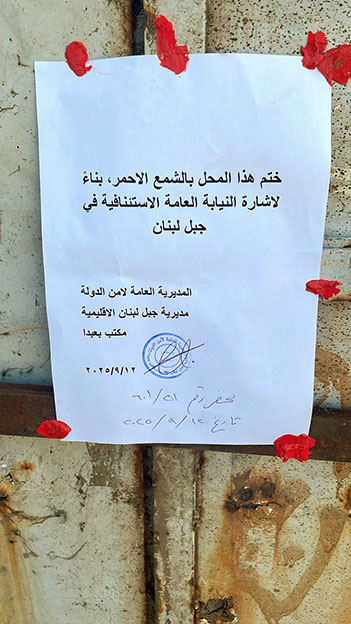 ختم هذا المحل بالشمع الاحمر، بناءً
لاشارة النيابة العامة الاستئنافية في
جبل لبنان
المديرية العامة لامن الدولة
مديرية جبل لبنان الاقليمية
مكتب بعبدا
٢٠٢٥/٩/١٢
محضر رقم ٦٠١/٥١
تاريخ ٢٠٢٥/٩/١٢